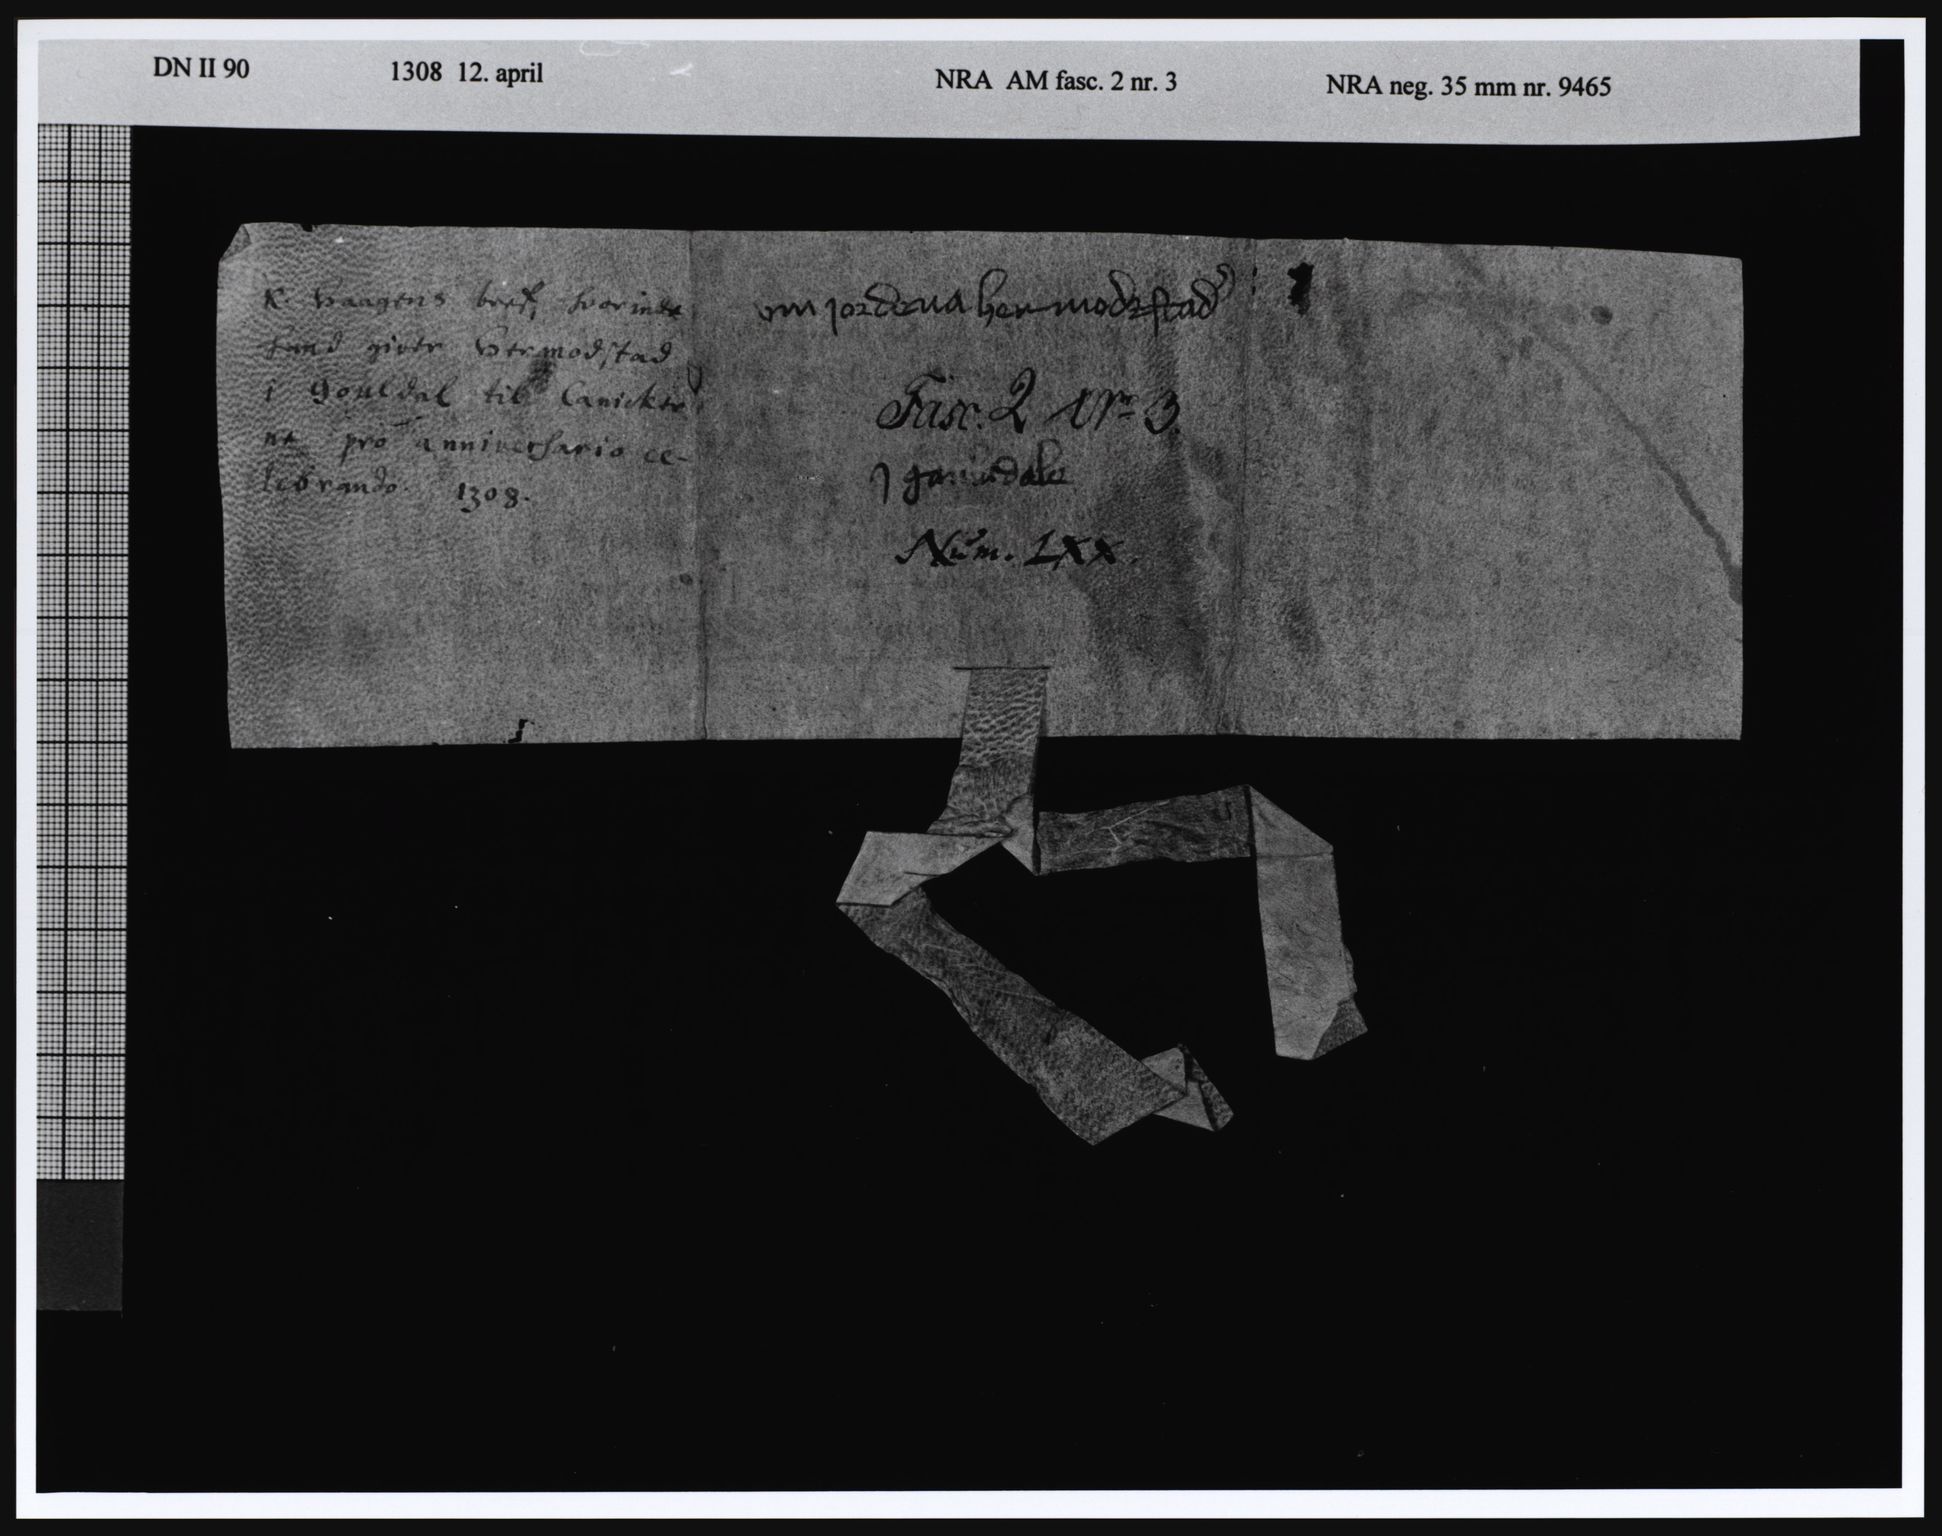 DN II 90 1308 12. april NRA AM fasc. 2 nr. 3 NRA neg. 35 mm nr. 9465
K. Haagens bref, hvorinde
hand giver Hermodstad
i Gouldal til Canicker
ne pro anniversario ce-
lebrando. 1308.
vm jordena hermodzstad
Fasc. 2 Nr. 3.
j gauldale
Num. LXX.